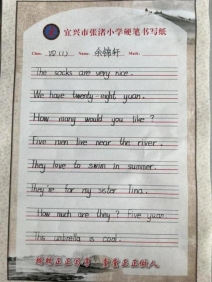 宜兴市张渚小学硬笔书写纸
Class: 四(1) Name: 余锦轩 Mark:
The socks are very nice.
We have twenty-night yuan.
How many would you like?
Five men live near the river.
They love to swim in summer.
They're for my sister Tina.
How much are they? Five yuan.
This umbrella is cool.
正正做人